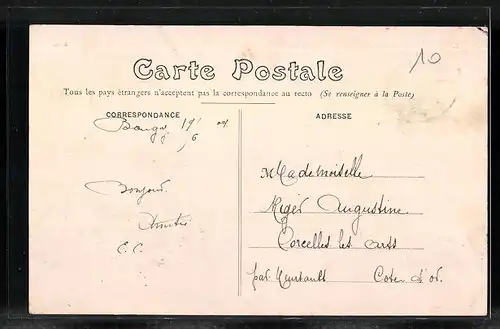 10
Carte Postale
Tous les pays étrangers n'acceptent pas la correspondance au recto (Se renseigner à la Poste)
CORRESPONDANCE
ADRESSE
Bonjour
Amitiés
C. C.
Mademoiselle
Augustine
Corcelles les arts
par Meursault Cote d'or.